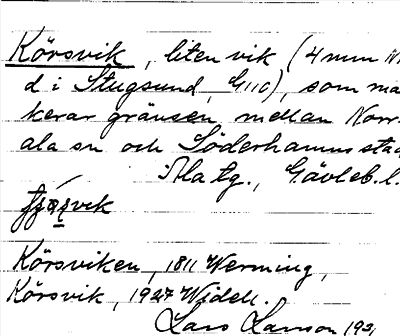 Körsvik, liten vik (4 mm N
d i Stugsund, G110), som ma
kerar gränsen mellan Norr-
ala sn och Söderhamns stad
Ala tg., Gävleb. l.
Körsviken, 1811 Werming,
Körsvik, 1927 Widell.
Lars Larson 193